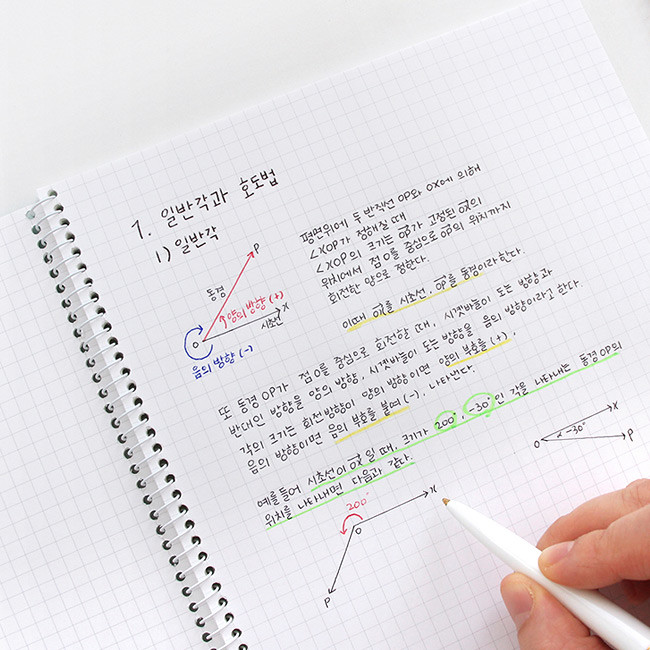 1. 일반각과 호도법
1) 일반각
P
동경
양의 방향 (+)
O
시초선
X
음의 방향 (-)
평면위에 두 반직선 OP와 OX에 의해
∠XOP가 정해질 때
∠XOP의 크기는 OP가 고정된 OX의
위치에서 점 O를 중심으로 OP의 위치까지
회전한 양으로 정한다.
이때 OX를 시초선, OP를 동경이라 한다.
또 동경 OP가 점 O를 중심으로 회전할 때, 시곗바늘이 도는 방향과
반대인 방향을 양의 방향, 시곗바늘이 도는 방향을 음의 방향이라고 한다.
각의 크기는 회전방향이 양의 방향이면 양의 부호를 (+),
음의 방향이면 음의 부호를 붙여 (-), 나타낸다.
예를들어 시초선이 OX 일 때, 크기가 200° -30° 인 각을 나타내는 동경 OP의
위치를 나타내면 다음과 같다.
200°
X
O
P
X
-30°
O
P